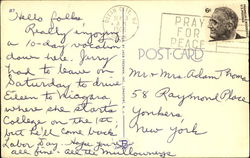 Hello folks
Really enjoying
a 10-day vacation
down here. Jerry
had to leave on
Saturday to drive
Eileen to Niagara
where she starts
College on the 1st
but he'll come back
Labor Day - Hope you're
all fine.
PRAY
FOR
PEACE
6¢
POST CARD
Mr & Mrs Adam
58 Raymond Place
Yonkers
New York